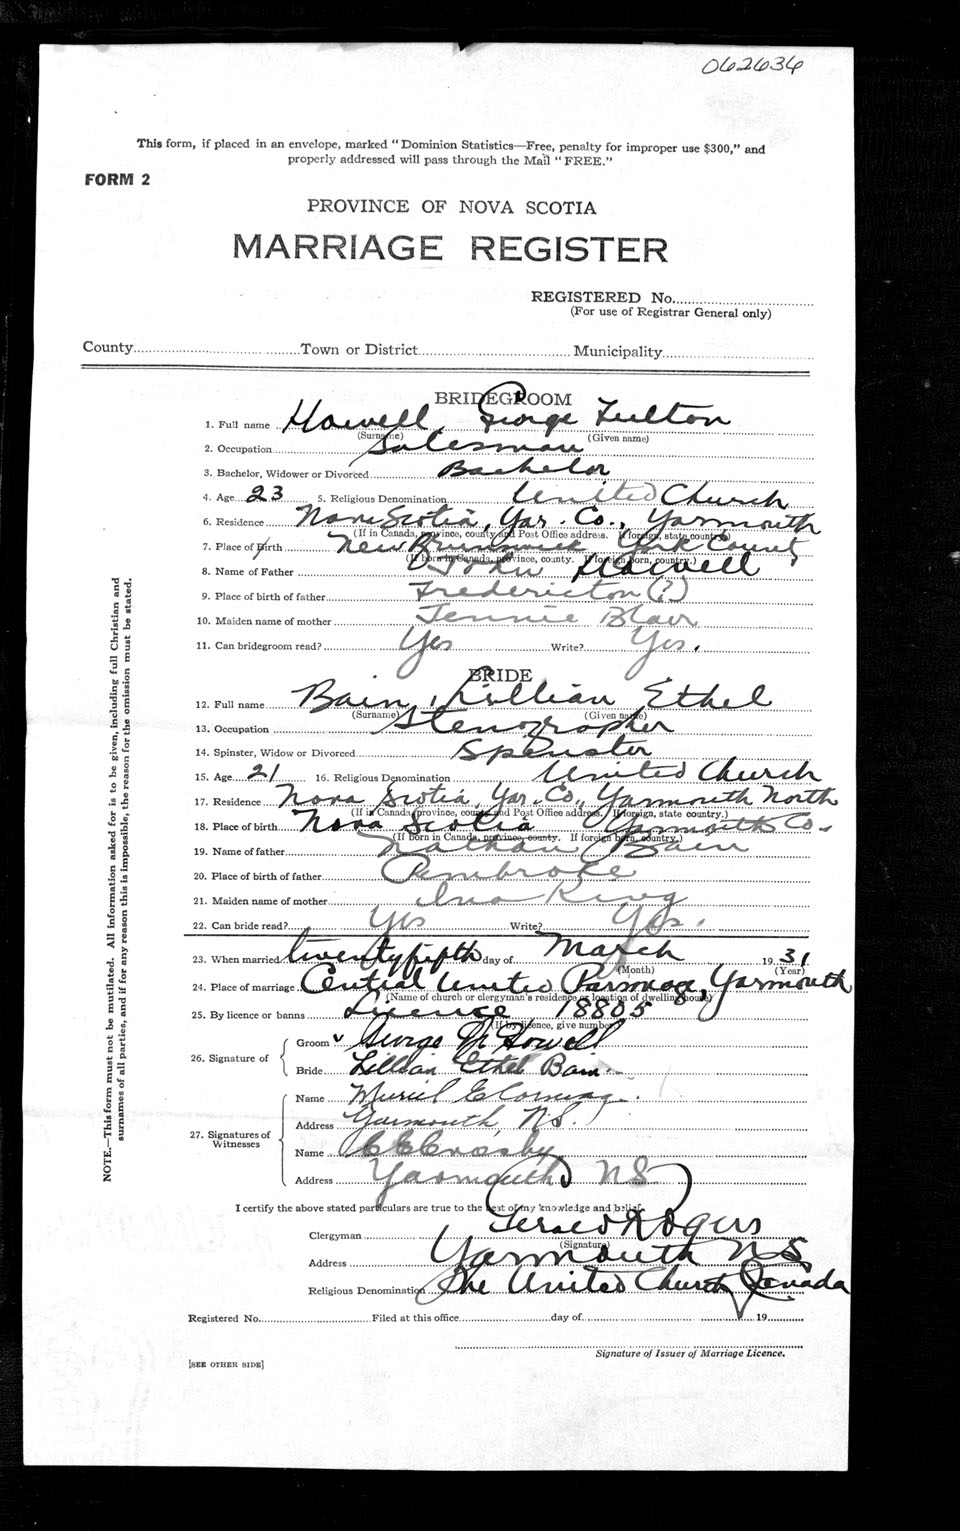 062636
This form, if placed in an envelope, marked "Dominion Statistics—Free, penalty for improper use $300," and
properly addressed will pass through the Mail "FREE."
FORM 2
PROVINCE OF NOVA SCOTIA
MARRIAGE REGISTER
REGISTERED No.
(For use of Registrar General only)
County Town or District Municipality
BRIDEGROOM
1. Full name Howell, George Fulton
(Surname) (Given name)
2. Occupation Salesman
3. Bachelor, Widower or Divorced Bachelor
4. Age 23 5. Religious Denomination United Church
6. Residence Nova Scotia, Yar. Co., Yarmouth
(If in Canada, province, county and Post Office address. If foreign, state country.)
7. Place of Birth New Brunswick York County
(If born in Canada, province, county. If foreign born, country.)
8. Name of Father John Howell
9. Place of birth of father Fredericton (?)
10. Maiden name of mother Jennie Blair
11. Can bridegroom read? Yes Write? Yes.
BRIDE
12. Full name Bain, Lillian Ethel
(Surname) (Given name)
13. Occupation Stenographer
14. Spinster, Widow or Divorced Spinster
15. Age 21 16. Religious Denomination United Church
17. Residence Nova Scotia, Yar. Co., Yarmouth North
(If in Canada, province, county and Post Office address. If foreign, state country.)
18. Place of birth Nova Scotia Yarmouth Co.
(If born in Canada, province, county. If foreign born, country.)
19. Name of father Nathan Bain
20. Place of birth of father Pembroke
21. Maiden name of mother Ina King
22. Can bride read? Yes Write? Yes.
23. When married twentyfifth day of March 1931
(Month) (Year)
24. Place of marriage Central United Parsonage, Yarmouth
(Name of church or clergyman's residence or location of dwelling house)
25. By licence or banns Licence 18805
(If by licence, give number)
26. Signature of
Groom George Howell
Bride Lillian Ethel Bain
27. Signatures of Witnesses
Name Muriel
Address Yarmouth, N.S.
Name C E Crosby
Address Yarmouth NS
I certify the above stated particulars are true to the best of my knowledge and belief.
Clergyman Rogers
(Signature)
Address Yarmouth N S
Religious Denomination The United Church Canada
Registered No. Filed at this office day of 19
Signature of Issuer of Marriage Licence.
[SEE OTHER SIDE]
NOTE.—This form must not be mutilated. All information asked for is to be given, including full Christian and
surnames of all parties, and if for any reason this is impossible, the reason for the omission must be stated.